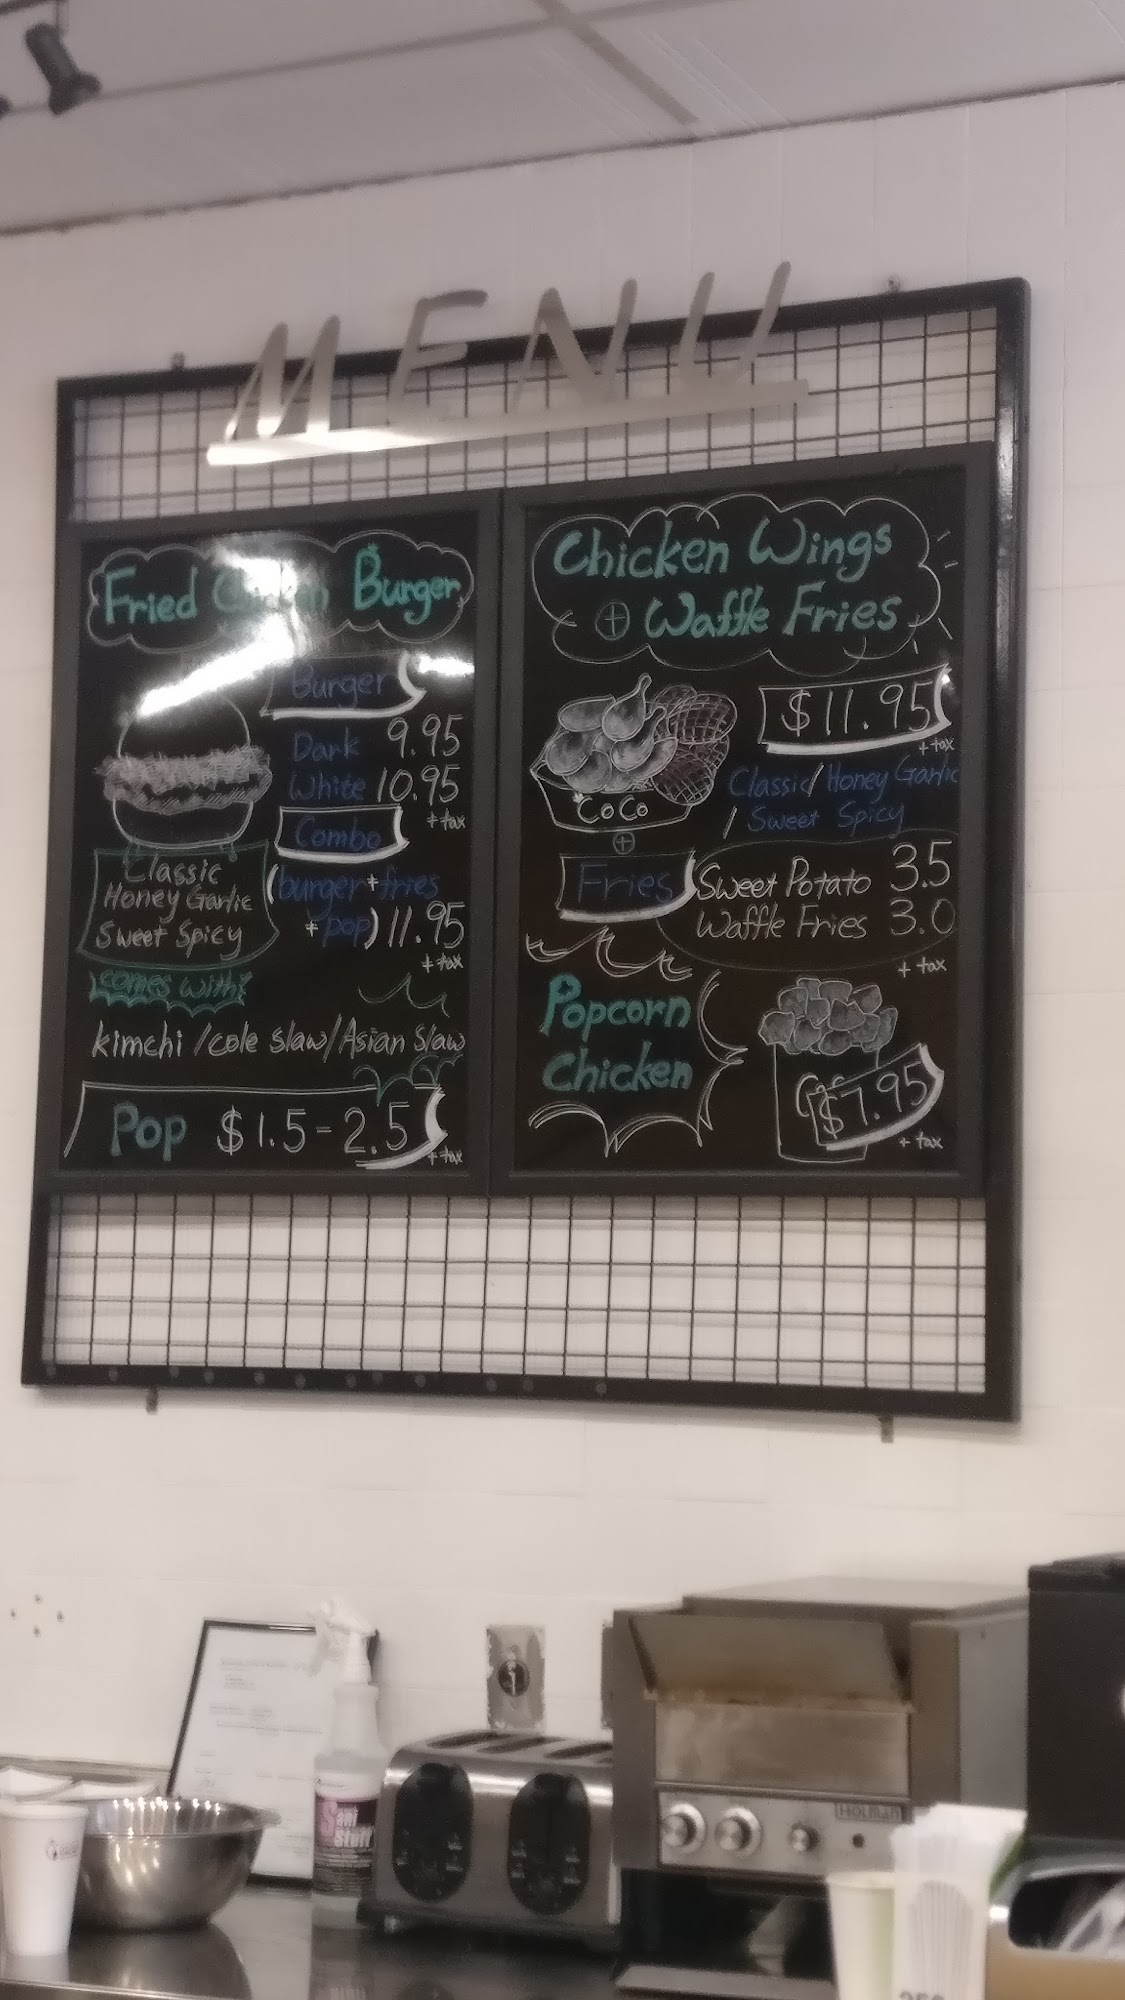 MENU
Fried Chicken Burger
Burger
Dark 9.95
White 10.95
+ tax
Combo
(burger + fries
+ pop) 11.95
+ tax
Classic
Honey Garlic
Sweet Spicy
comes with:
kimchi / cole slaw / Asian slaw
Pop $1.5 - 2.5
+ tax
Chicken Wings
+ Waffle Fries
$11.95
+ tax
Classic / Honey Garlic
/ Sweet Spicy
CoCo
+
Fries
Sweet Potato 3.5
Waffle Fries 3.0
+ tax
Popcorn
Chicken
$7.95
+ tax
Sani
Stuff
HOLMAN